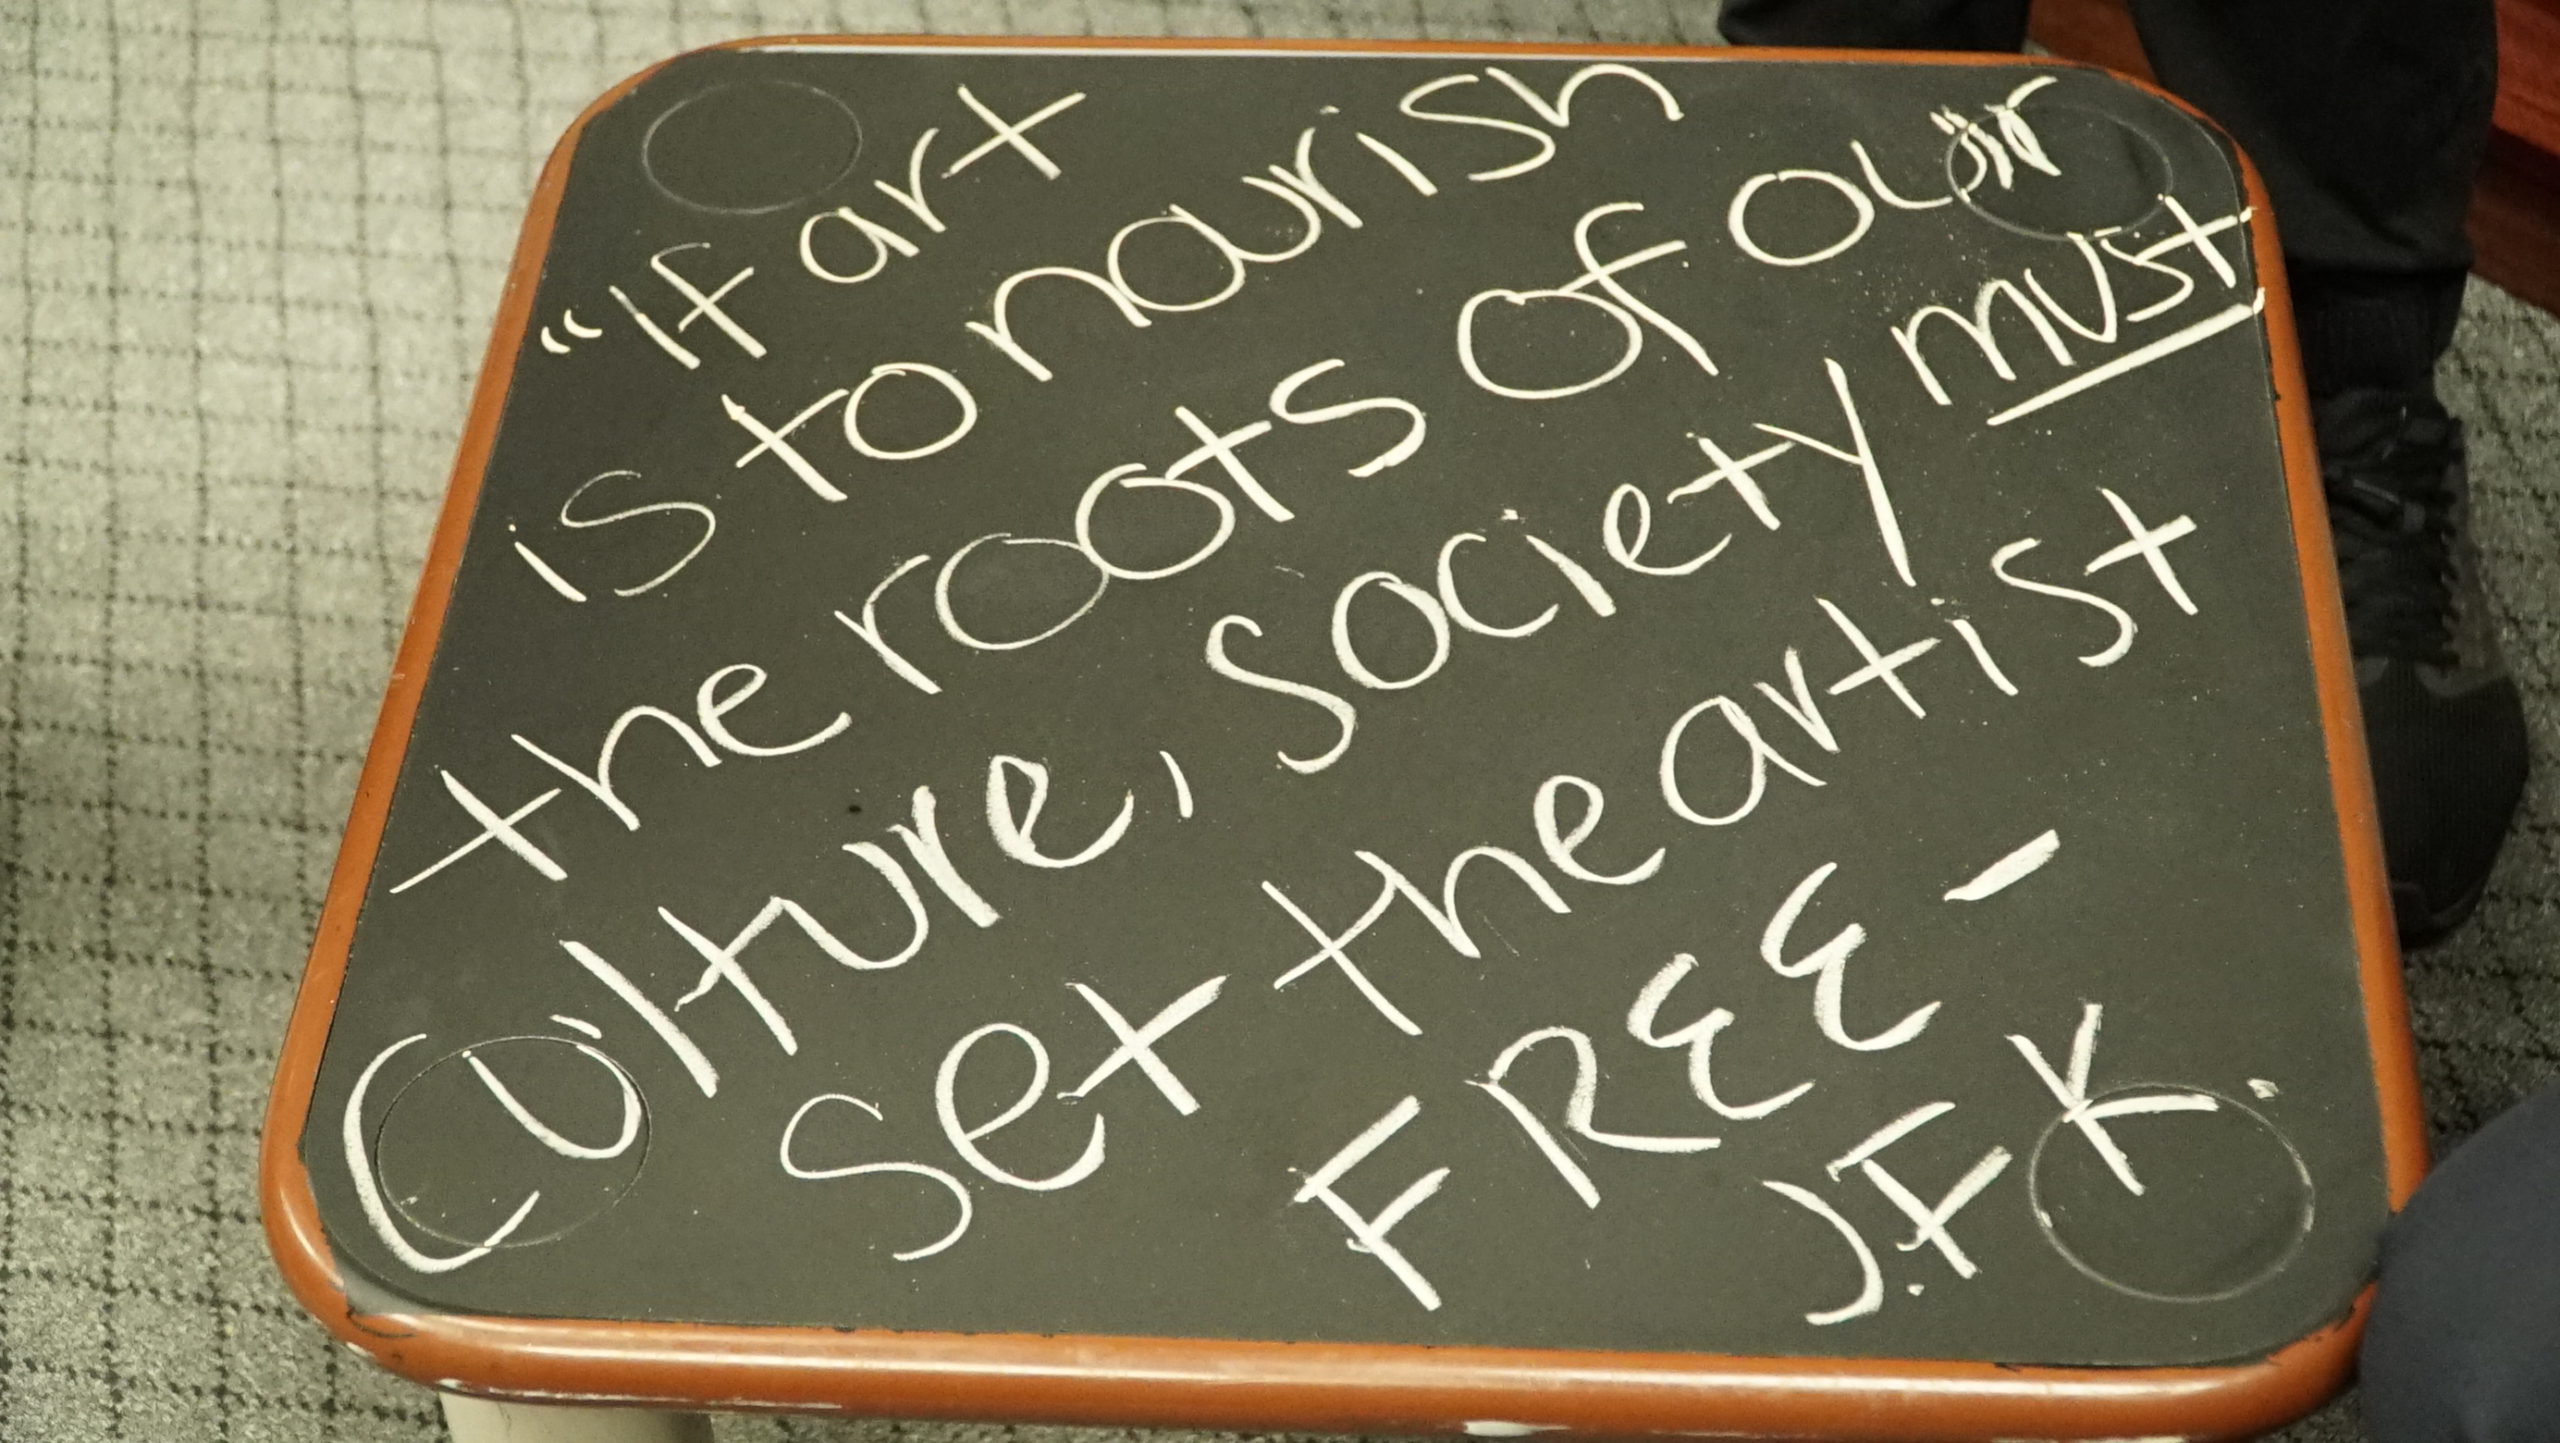 "If art
is to nourish
the roots of our
Culture, society must
set the artist
FREE -
J.F.K.